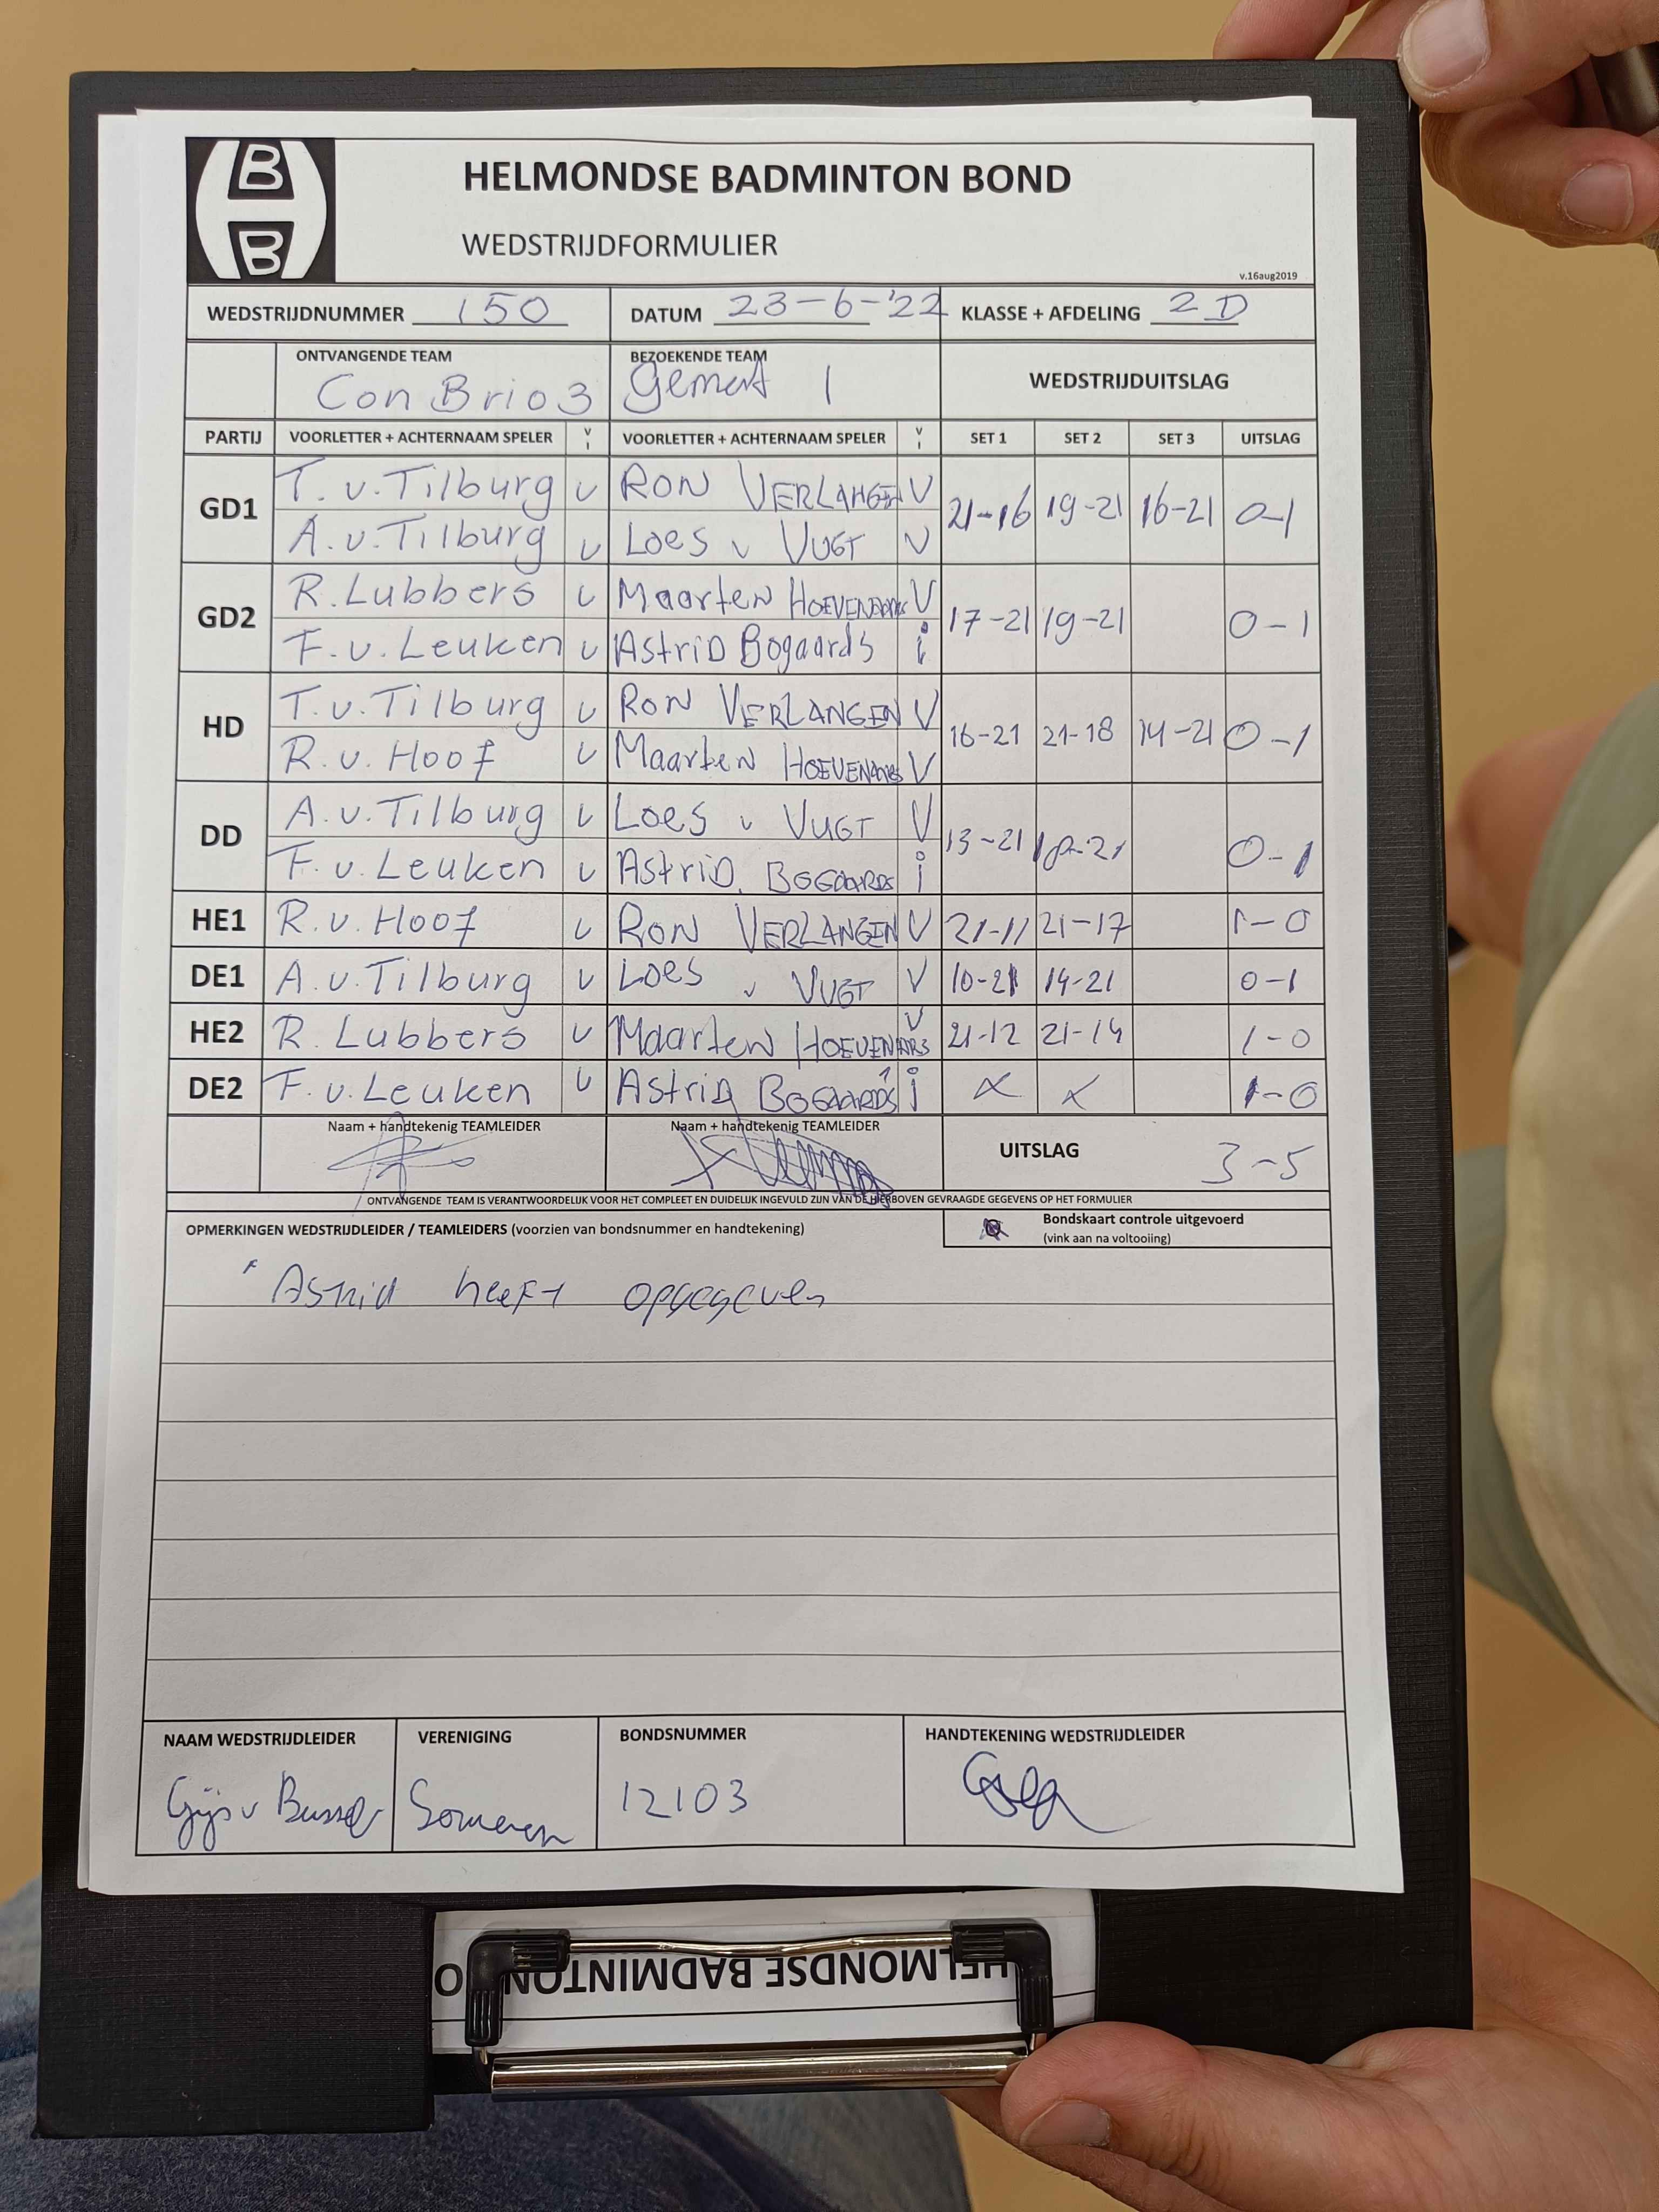 B
B
HELMONDSE BADMINTON BOND
WEDSTRIJDFORMULIER
v.16aug2019
WEDSTRIJDNUMMER 150 DATUM 23-6-'22 KLASSE + AFDELING 2D
ONTVANGENDE TEAM BEZOEKENDE TEAM WEDSTRIJDUITSLAG
Con Brio 3 Gemert 1
PARTIJ VOORLETTER + ACHTERNAAM SPELER V I VOORLETTER + ACHTERNAAM SPELER V I SET 1 SET 2 SET 3 UITSLAG
GD1 T. v. Tilburg v RON VERLANGEN V 21-16 19-21 16-21 0-1
A. v. Tilburg v Loes v VUGT V
GD2 R. Lubbers v Maarten HOEVENAARS V 17-21 19-21 0-1
F. v. Leuken v AstriD Bogaards i
HD T. v. Tilburg v RON VERLANGEN V 16-21 21-18 14-21 0-1
R. v. Hoof v Maarten HOEVENAARS V
DD A. v. Tilburg v Loes v VUGT V 13-21 21 0-1
F. v. Leuken v AstriD BOGAARDS i
HE1 R. v. Hoof v RON VERLANGEN V 21-11 21-17 1-0
DE1 A. v. Tilburg v Loes v VUGT V 10-21 14-21 0-1
HE2 R. Lubbers v Maarten HOEVENAARS V 21-12 21-14 1-0
DE2 F. v. Leuken v AstriD BOGAARDS i X X 1-0
Naam + handtekenig TEAMLEIDER Naam + handtekenig TEAMLEIDER UITSLAG 3-5
ONTVANGENDE TEAM IS VERANTWOORDELIJK VOOR HET COMPLEET EN DUIDELIJK INGEVULD ZIJN VAN DE HIERBOVEN GEVRAAGDE GEGEVENS OP HET FORMULIER
OPMERKINGEN WEDSTRIJDLEIDER / TEAMLEIDERS (voorzien van bondsnummer en handtekening) Bondskaart controle uitgevoerd
(vink aan na voltooiing)
Astrid heeft opgegeven
NAAM WEDSTRIJDLEIDER VERENIGING BONDSNUMMER HANDTEKENING WEDSTRIJDLEIDER
Gijs v Bussel Someren 12103
HELMONDSE BADMINTON